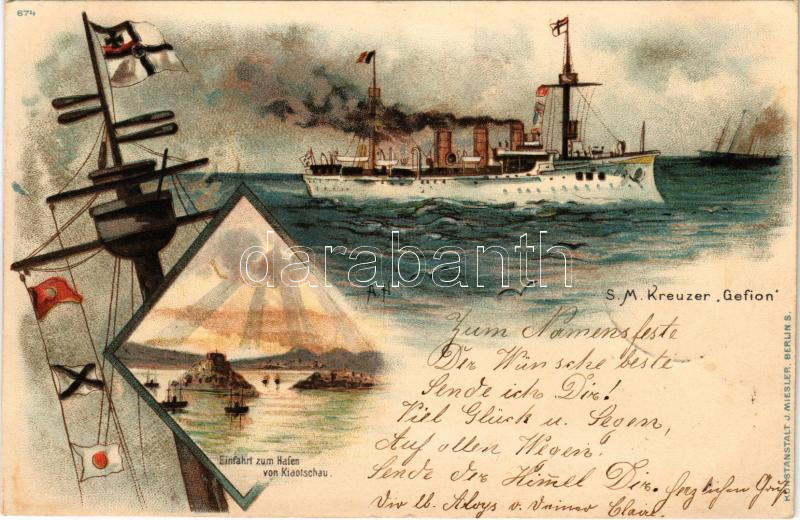 674
darabanth
S. M. Kreuzer „Gefion"
Zum Namensfeste
Die Wünsche beste
Sende ich Dir!
Viel Glück u. Segen,
Auf allen Wegen
Sende der Himmel Dir. herzlichen Gruß
Dir lb. Aloys v. Deiner Claire.
Einfahrt zum Hafen
von Kiaotschau.
KUNSTANSTALT J. MIESLER, BERLIN S.